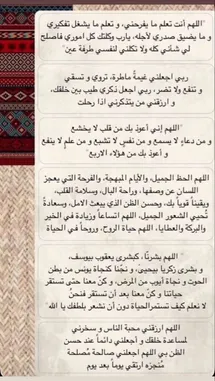 اللهم أنت تعلم ما يفرحني، و تعلم ما يشغل تفكيري
و ما يضيق صدري لأجله، يارب وكلتك كل اموري فاصلح
لي شأني كله ولا تكلني لنفسي طرفة عين
ربي اجعلني غيمةً ماطرة، تروي و تسقي
و تنفع ولا تضر، ربي اجعل ذكري طيب بين خلقك،
و ارزقني من يتذكرني اذا رحلت
"اللهم إني أعوذ بك من قلب لا يخشع
و من دعاءٍ لا يسمع و من نفسٍ لا تشبع و من علمٍ لا ينفع
و أعوذ بك من هؤلاء الاربع"
اللهم الحظ الجميل، والأيام المبهجة، والفرحة التي يعجز
اللسان عن وصفها، وراحة البال، وسلامة القلب،
ويقيناً قوياً بك، وحسن الظن الذي يبعث الامل، وسعادةً
تُحيي الشعور الجميل، اللهم اتساعاً وزيادة في الخير
والبركة والعطايا، اللهم حياة الروح، وروحاً في الحياة
اللهم بشرنا، كبشرى يعقوب بيوسف،
و بشرى زكريا بيحيى، و نجّنا كنجاة يونس من بطن
الحوت و نجاة أيوب من المرض، و كنّ معنا حتى تستقر
حياتنا و كنّ معنا بعد أن تستقر فنحنُ
لا نعلم كيف تستمرالحياة دون أن نشعر بلطفك يا الله
اللهم ارزقني محبة الناس و سخرني
لمساعدة خلقك و أجعلني دائماً عند حسن
الظن بي اللهم اجعلني صالحة مُصلحة
مُنجزه أرتقي يوماً بعد يوم